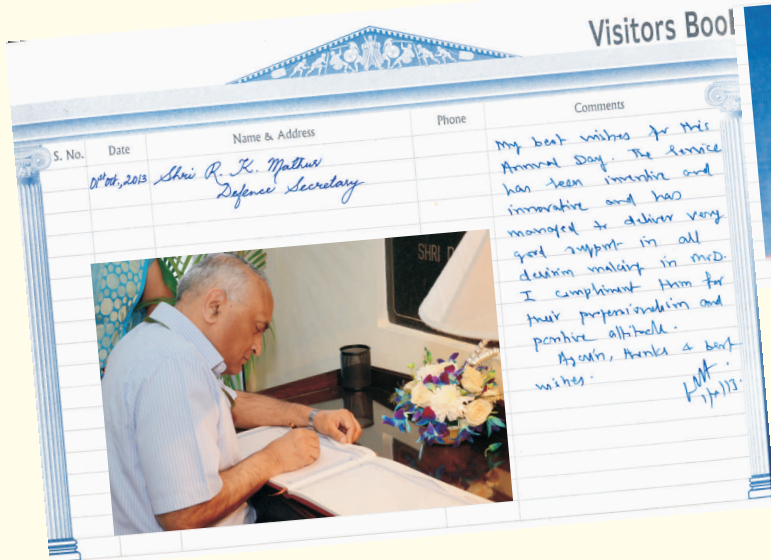 Visitors Boo
S. No.
Date
Name & Address
Phone
Comments
01st Oct., 2013
Shri R. K. Mathur
Defence Secretary
My best wishes for this
Annual Day. The Service
has been inventive and
innovative and has
managed to deliver very
good support in all
decision making in MoD.
I compliment them for
their professionalism and
positive attitude.
Again, thanks & best
wishes.
1/10/13.
SHRI